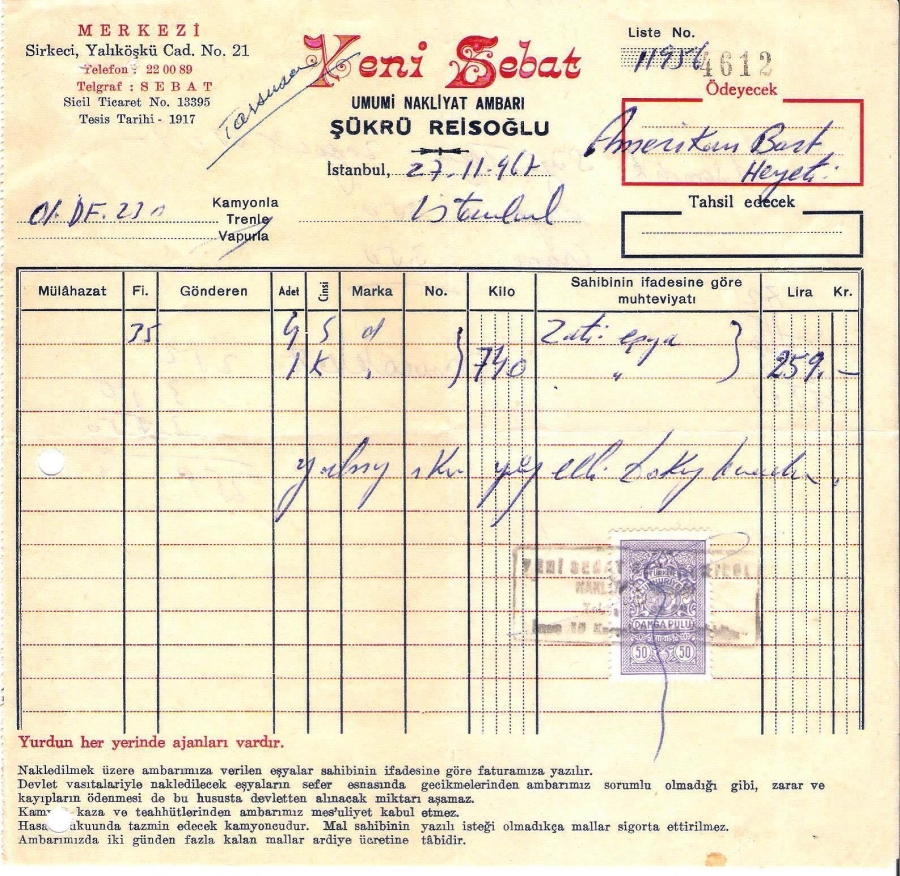 MERKEZİ
Sirkeci, Yalıköşkü Cad. No. 21
Telefon : 22 00 89
Telgraf : SEBAT
Sicil Ticaret No. 13395
Tesis Tarihi - 1917
Yeni Sebat
UMUMİ NAKLİYAT AMBARI
ŞÜKRÜ REİSOĞLU
İstanbul, 27.11.967
istanbul
Liste No.
11956 4612
Ödeyecek
Amerikan Bort
Heyeti
Tahsil edecek
01.DF.230
Kamyonla
Trenle
Vapurla
Mülâhazat Fi. Gönderen Adet Cinsi Marka No. Kilo Sahibinin ifadesine göre muhteviyatı Lira Kr.
35 4 S d Zati eşya
1 K " 740 " 259.—
elli
DAMGA PULU
50 50
Yurdun her yerinde ajanları vardır.
Nakledilmek üzere ambarımıza verilen eşyalar sahibinin ifadesine göre faturamıza yazılır.
Devlet vasıtalariyle nakledilecek eşyaların sefer esnasında gecikmelerinden ambarımız sorumlu olmadığı gibi, zarar ve
kayıpların ödenmesi de bu hususta devletten alınacak miktarı aşamaz.
kaza ve teahhütlerinden ambarımız mes'uliyet kabul etmez.
tazmin edecek kamyoncudur. Mal sahibinin yazılı isteği olmadıkça mallar sigorta ettirilmez.
Ambarımızda iki günden fazla kalan mallar ardiye ücretine tâbidir.